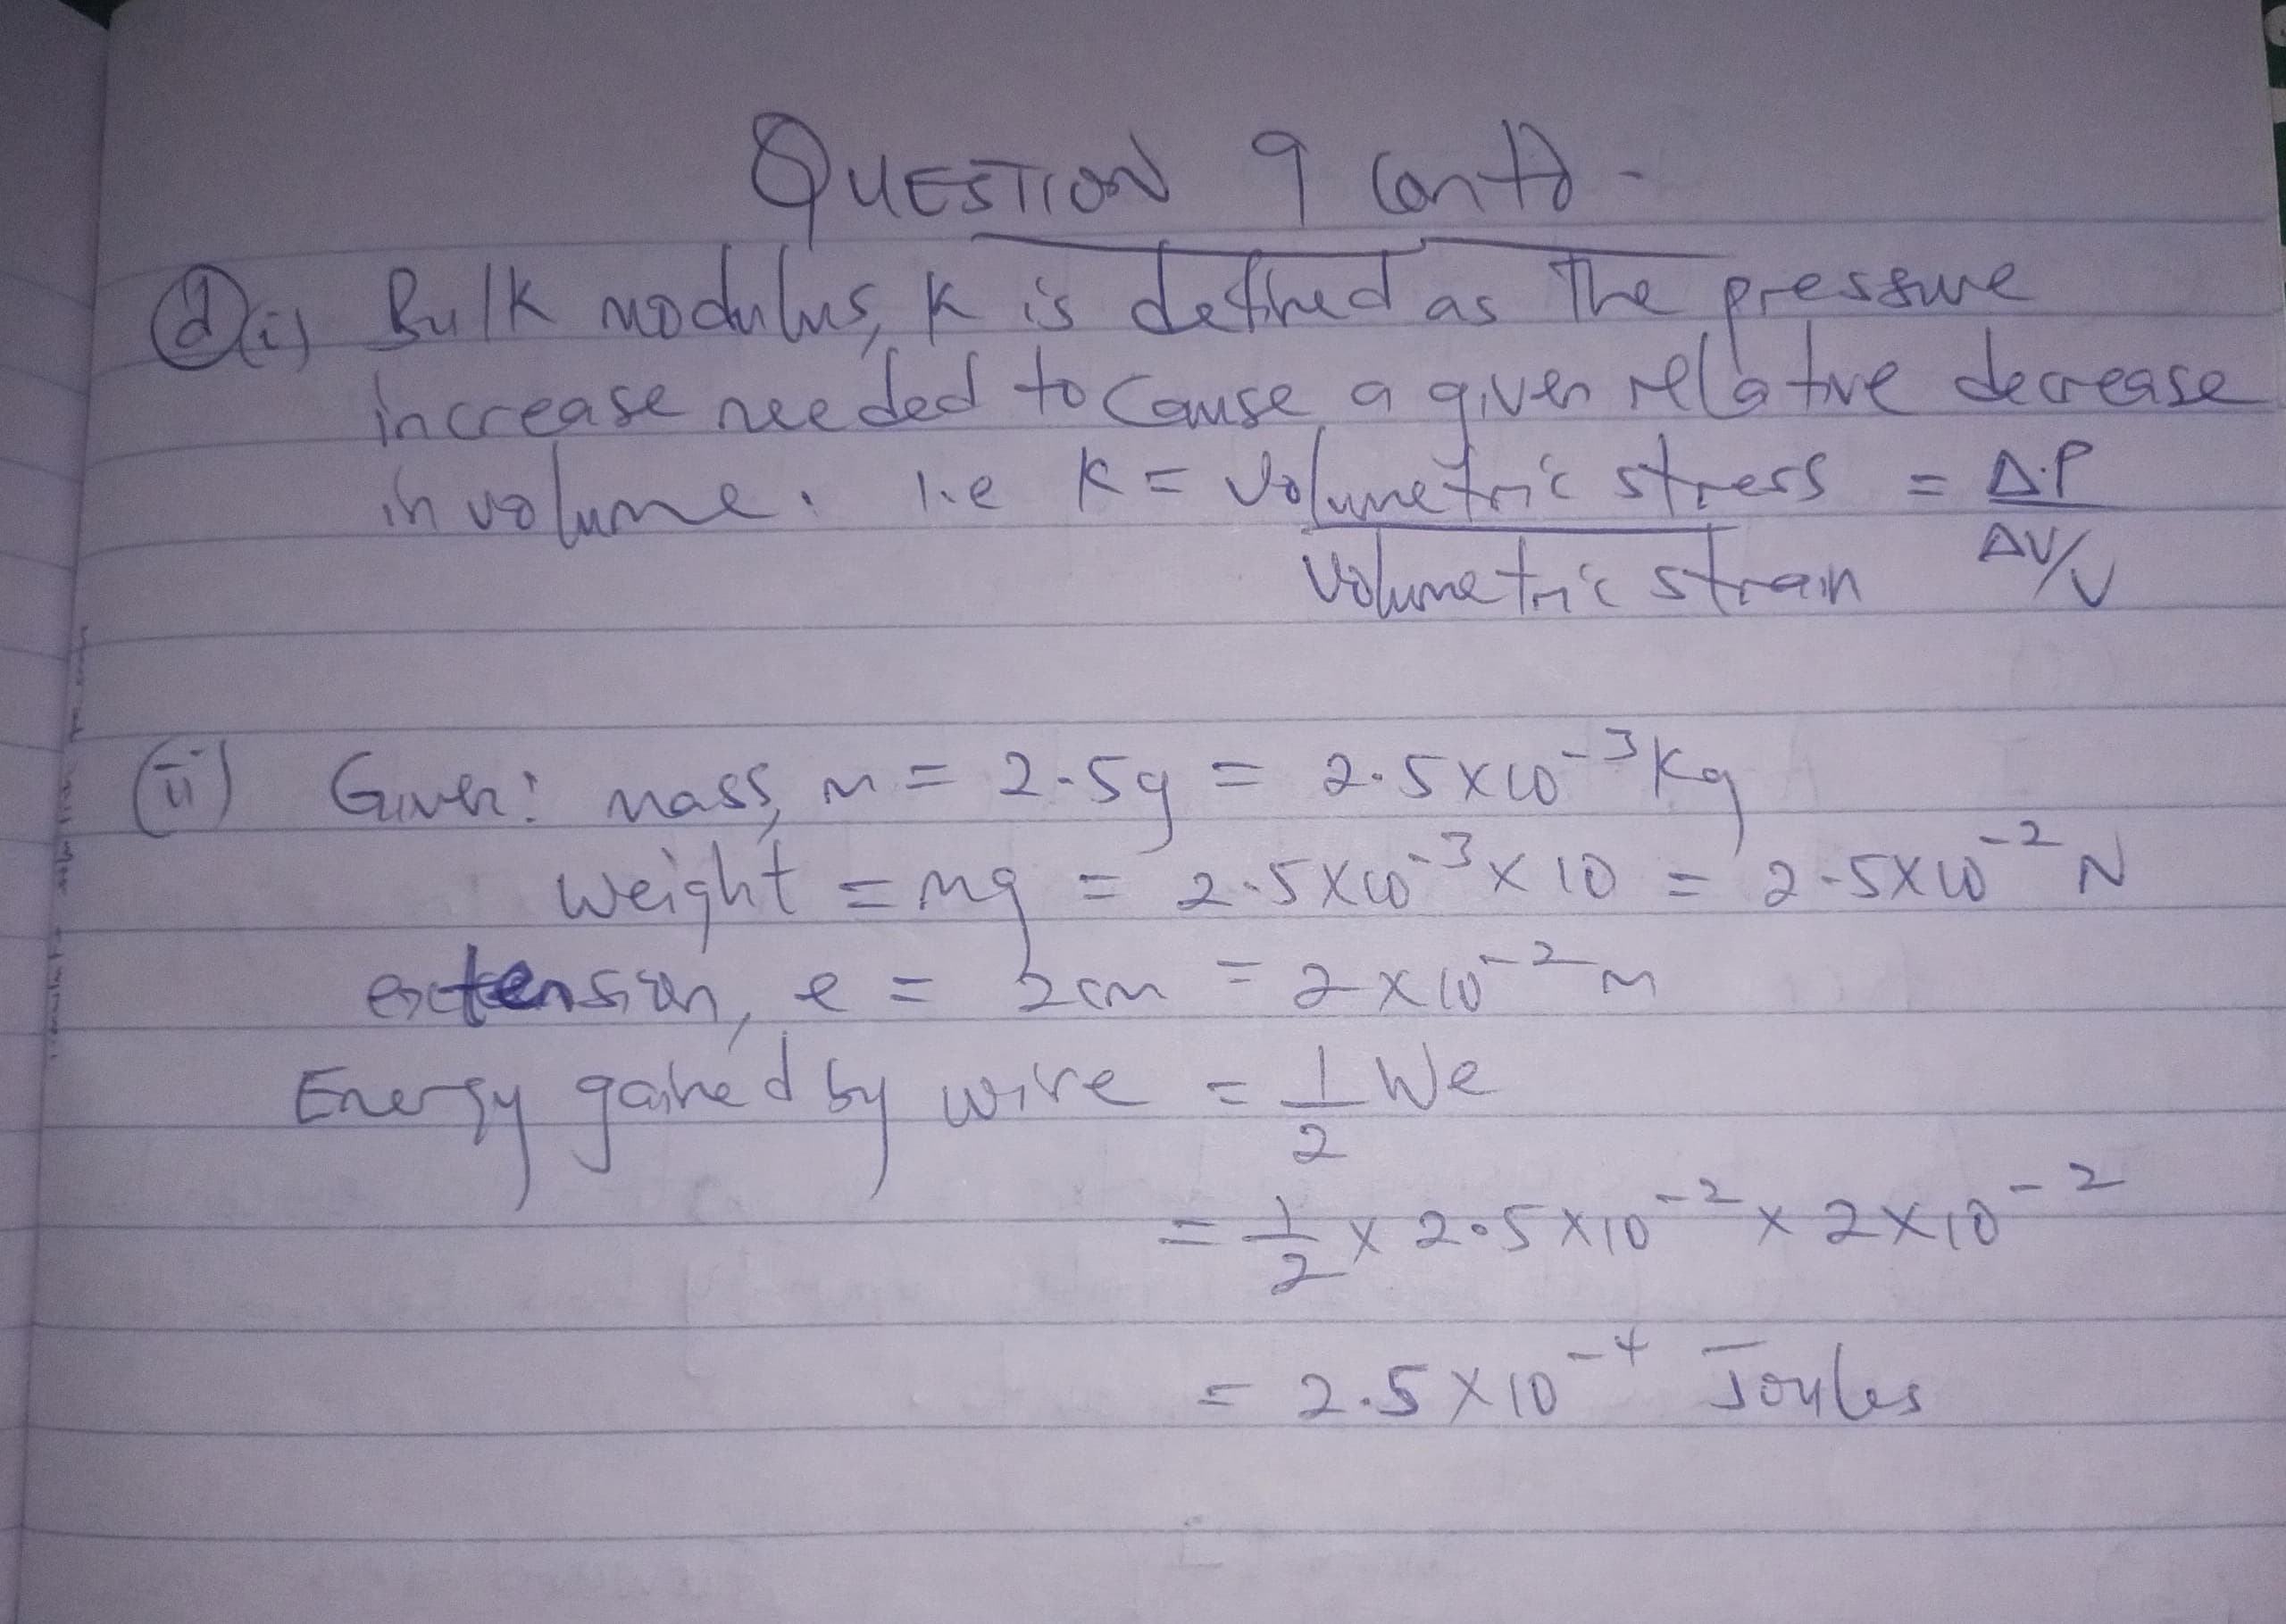 QUESTION 9 Contd -
(d)(i) Bulk modulus, K is defined as The pressure
increase needed to cause a given relative decrease
in volume. i.e K = Volumetric stress = ΔP
Volumetric strain ΔV/V
(ii) Given: mass, m = 2.5g = 2.5×10⁻³Kg
Weight = mg = 2.5×10⁻³ × 10 = 2.5×10⁻² N
extension, e = 2cm = 2×10⁻² m
Energy gained by wire = 1/2 We
= 1/2 × 2.5×10⁻² × 2×10⁻²
= 2.5×10⁻⁴ Joules